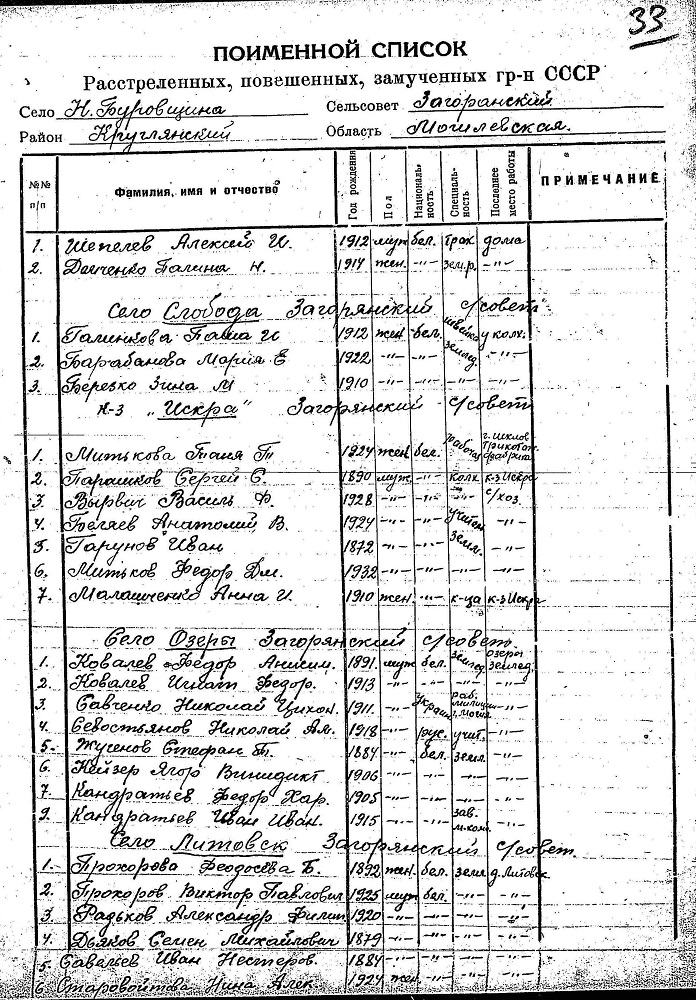 33
ПОИМЕННОЙ СПИСОК
Расстреленных, повешенных, замученных гр-н СССР
Село Н. Буровщина Сельсовет Загоранский
Район Круглянский Область Могилевская.
№№ п/п Фамилия, имя и отчество Год рождения Пол Националь-ность Специаль-ность Последнее место работы ПРИМЕЧАНИЕ
1. Шепелев Алексей И. 1912 муж бел. трак дома
2. Галина Н. 1914 жен. -"- зем.р. -"-
Село Слобода Загорянский с/совет
1. Галинкова Паша И 1912 жен. бел. швейка у колх.
2. Барабанова Мария Е 1922 -"- -"- землед. -"-
3. Березко Зина М 1910 -"- -"- -"- -"-
к-з „Искра" Загорянский с/совет
1. Митькова Таня Т 1924 жен. бел. рабочая г. Шклов трикотаж. фабрика
2. Парашков Сергей С. 1890 муж -"- колх к-з Искра
3. Вырвич Василь Ф. 1928 -"- -"- -"- с/хоз.
4. Бегаев Анатолий В. 1924 -"- -"- учител -"-
5. Гарунов Иван 1872 -"- -"- землед. -"-
6. Митьков Федор Дм. 1932 -"- -"- -"- -"-
7. Малашченко Анна И. 1910 жен. -"- к-ца к-з Искра
Село Озеры Загорянский с/совет.
1. Ковалев Федор Анисим. 1891. муж бел. землед. озеры землед.
2. Ковалев Игнат Федор. 1913 -"- -"- -"- -"-
3. Савченко Николай Цихон. 1911. -"- Украин раб. милиции г. Могил. -"-
4. Севостьянов Николай Ал. 1918 -"- рус. учит. -"-
5. Жученов Стефан Т. 1884 -"- бел. земл. -"-
6. Кейзер Ягор Винидикт 1906 -"- -"- -"- -"-
7. Кандратьев Федор Хар. 1905 -"- -"- -"- -"-
9. Кандратьев Иван Иван. 1915 -"- -"- зав. -"-
Село Литовск Загорянский с/совет.
1. Прохорова Феодосева Б. 1892 жен. бел. земл д. Литовск
2. Прохоров Виктор Павлович 1925 муж бел. -"- -"-
3. Радьков Александр Филип 1920 -"- -"- -"- -"-
4. Дьяков Семен Михайлович 1879 -"- -"- -"- -"-
5. Савельев Иван Нестеров. 1884 -"- -"- -"- -"-
6. Старовойтова Нина Алек 1924 жен -"- -"- -"-